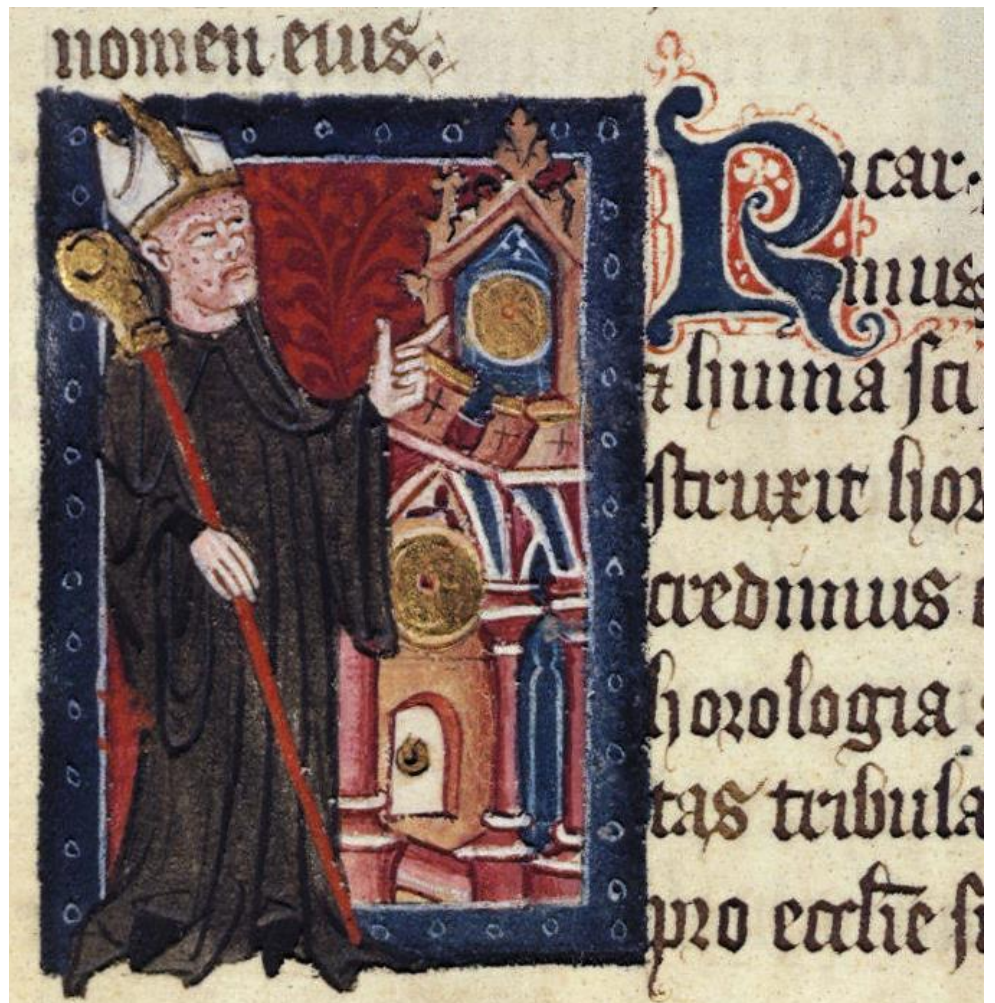 nomen eius.
Ricar
mus
⁊ huma sci
struxit hor
credimus
horologia
tas tribula
pro ecclie si